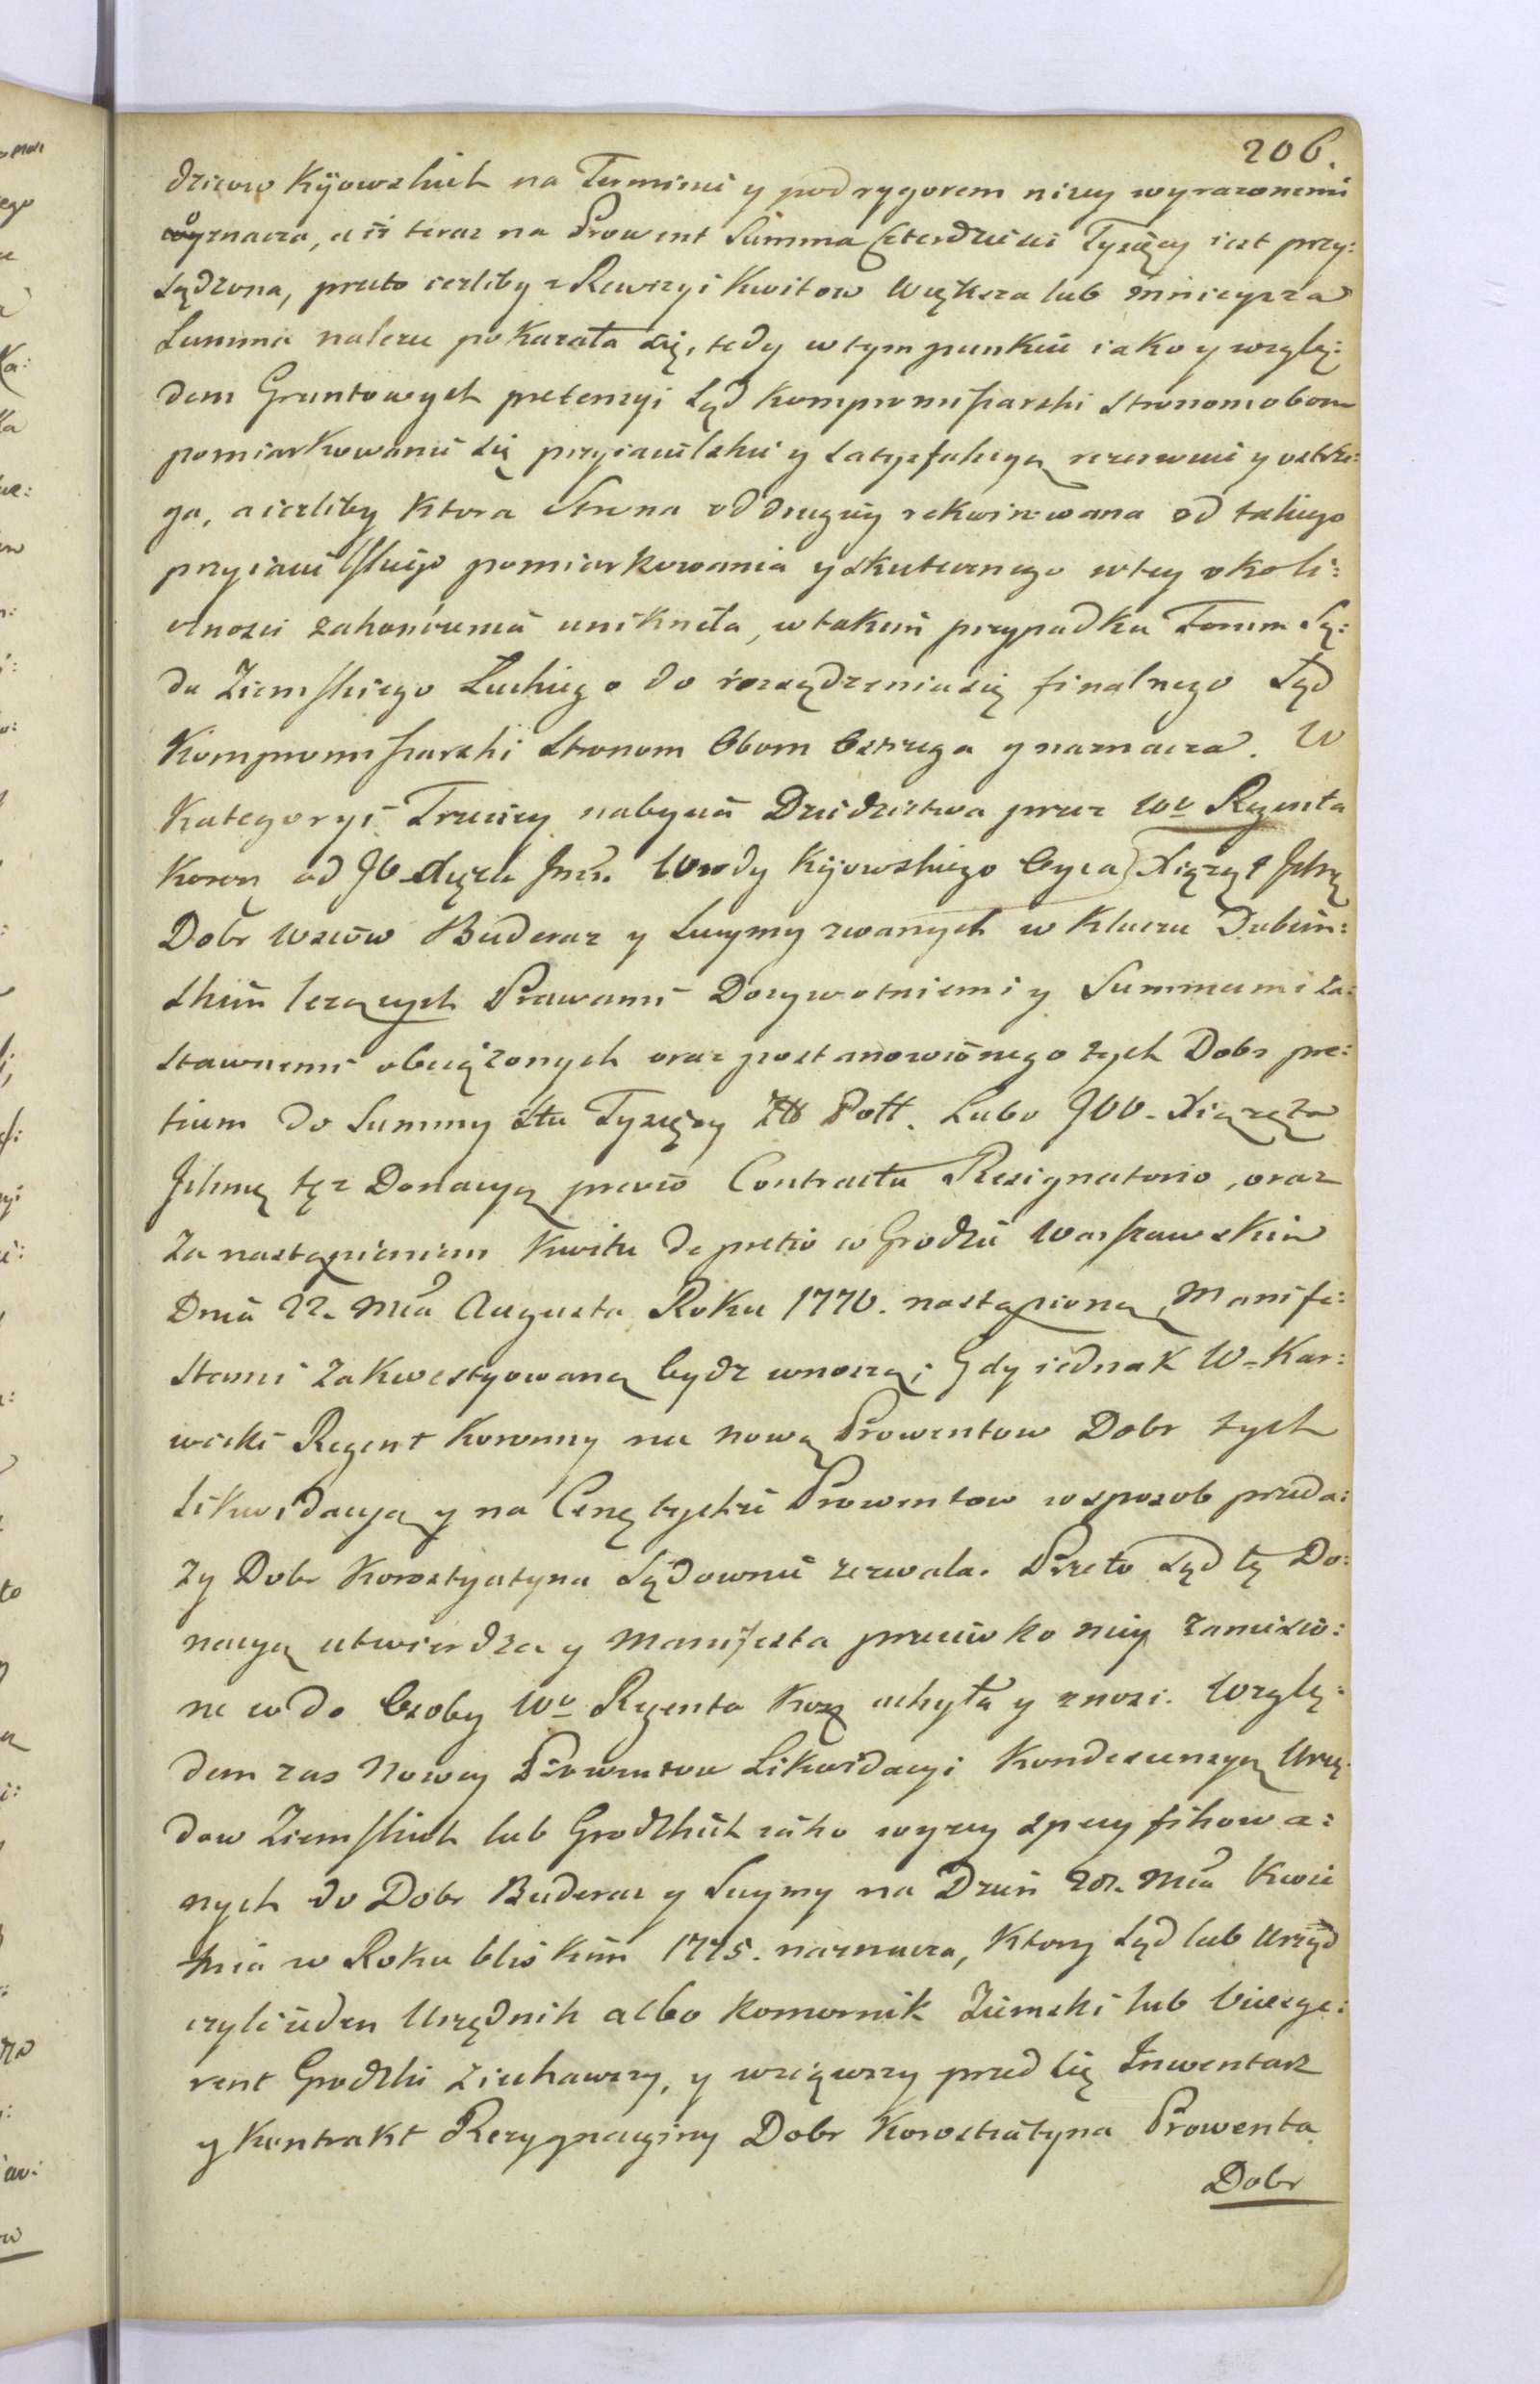 206.
dziców Kijowskich na Terminie y pod rygorem niżey wyrażonemi
oznacza, a iż teraz na Prowent Summa Czterdzieści Tysięcy iest przy:
sądzona, przeto ieżeliby z Rewizyi Kwitow Większa lub mnieysza
Summa należeć pokazała się, tedy w tym punkcie iako y wzglę:
dem Gruntowych pretensyi Sąd Kompromissarski Stronom obom
pomiarkowanie się przyiacielskie y satysfakcyą rezerwuie y ostrze:
ga, a ieżliby Ktora Strona od drugiey rekwirowana od takiego
przyiacielskiego pomiarkowania y skutecznego w tey okoli:
cznosci zakonczenia unikneła, w takim przypadku Forum Są:
du Ziemskiego Łuckiego do rozsądzenia się finalnego Sąd
Kompromissarski Stronom Obom Ostrzega y naznacza. W
Kategoryi Trzeciey nabycia Dziedzictwa przez Wo Regenta
Koron od JO Xięcia Jmci Wwdy Kijowskiego Oyca Xiążąt Jchmę
Dobr Wsiow Buderaz y Suymy zwanych w Kluczu Dubin:
skim leżących Prawami Dożywotniemi y Summami za:
stawnemi obciążonych oraz postanowionego tych Dobr pre:
tium do Summy Stu Tysięcy Zł Poll. Lubo JOO. Xiążęta
Jchmę tęż Donacyą previo Contractu Resignatorio, oraz
za nastąpieniem Kwitu de pretio w Grodzie Warszawskim
Dnia 22. Mca Augusta Roku 1770. nastąpioną, Manife:
stami zakwestyowaną bydź wnoszą; Gdy iednak W. Kar:
wicki Regent Koronny na nową Prowentow Dobr tych
Likwidacyą y na Cenę tychże Prowentow w sposob przeda:
ży Dobr Korostyatyna Sądownie zezwala. Przeto Sąd tę Do:
nacyą utwierdza y Manifesta przeciwko niey zaniesio:
ne co do Osoby Wo Regenta Kor uchyla y znosi. Wzglę:
dem zas Nowey Prowentow Likwidacyi Kondescensyą Urzę:
dow Ziemskich lub Grodzkich iako wyzey specyfikowa:
nych do Dobr Buderaz y Suymy na Dzień 20. Mca Kwie
tnia w Roku bliskim 1775. naznacza, Ktory Sąd lub Urząd
czyli ieden Urzędnik albo Komornik Ziemski lub Vicege:
rent Grodzki ziechawszy, y wziąwszy przed się Inwentarz
y Kontrakt Rezygnacyiny Dobr Korostiatyna Prowenta
Dobr